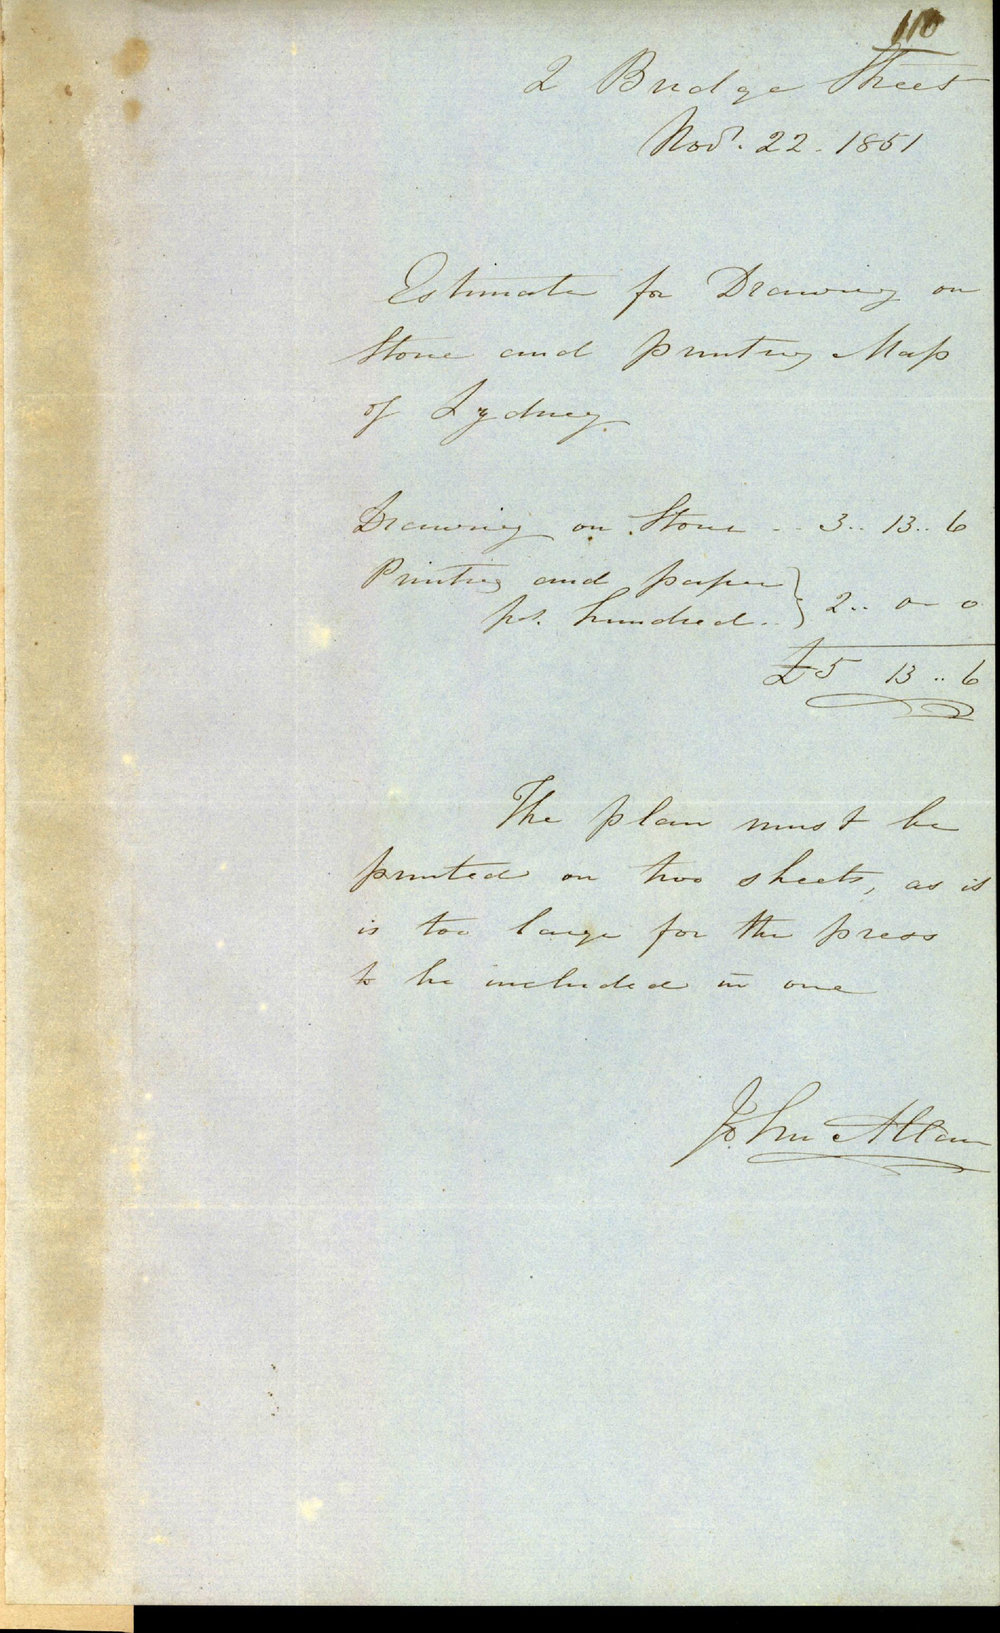 110
2 Bridge Street
Novr. 22. 1851
Estimate for Drawing on
Stone and printing Map
of Sydney.
Drawing on Stone .. 3.. 13.. 6
Printing and paper
pr. hundred.. } 2.. 0 - 0
£5 13 .. 6
The plan must be
printed on two sheets, as it
is too large for the press
to be included in one
John Allan